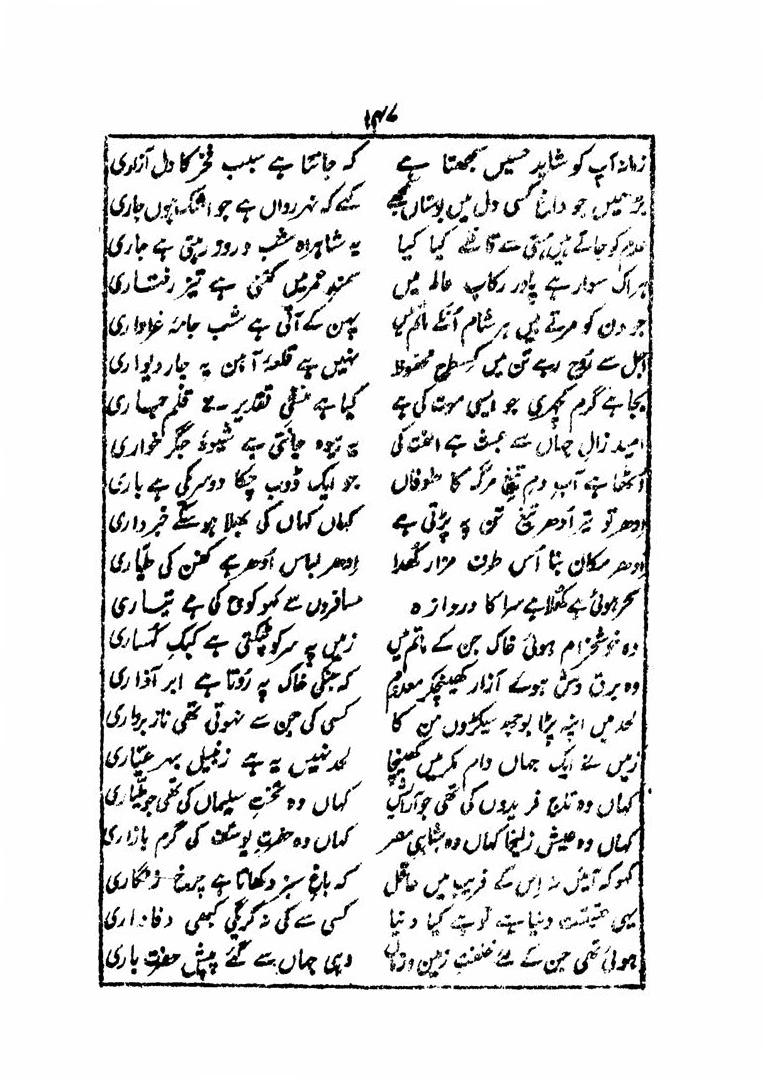 ۱۴۷
زمانہ آپ کو شاید حسیں سمجھتا ہے کہ جانتا ہے سبب فخر کا دل آزاری
پڑھیں جو داغ کسی دل میں بوستاں سمجھے کہے کہ نہر رواں ہے جو اشک ہوں جاری
عدم کو جاتے ہیں ہستی سے قافلے کیا کیا یہ شاہراہ شب و روز رہتی ہے جاری
ہر اک سوار ہے پادر رکاب عالم میں سمند عمر میں کتنی ہے تیز رفتاری
جو دن کو مرتے ہیں ہر شام انکے ماتم میں پہن کے آتی ہے شب جامۂ عزاداری
اجل سے روح رہے تن میں کسطرح محفوظ نہیں ہے قلعۂ آہن یہ چار دیواری
بجا ہے گرم کچہری جو ایسی موت کی ہے کیا ہے منشی تقدیر نے قلم جاری
امید زال جہاں سے عبث ہے الفت کی یہ بیوہ جانتی ہے شیوۂ جگر خواری
اٹھا ہے آب دم تیغ مرگ کا طوفاں جو ایک ڈوب چکا دوسرے کی ہے باری
ادھر تو تیر اودھر تیغ تن پہ پڑتی ہے کہاں کہاں کی بھلا ہو سکے خبرداری
ادھر مکان بنا اس طرف مزار کھدا ادھر لباس اودھر ہے کفن کی طیاری
سحر ہوئی ہے کھلا ہے سرا کا دروازہ مسافروں سے کہو کوچ کی ہے تیاری
وہ خوشخرام ہوئی خاک جن کے ماتم میں زمیں پہ سر کو پٹکتی ہے کبک کہساری
وہ برق وش ہوے آزار کھینچکر معدوم کہ جنکی خاک پہ روتا ہے ابر آذاری
لحد میں اپنہ پڑا بوجھ سیکڑوں من کا کسی کی جن سے نہوتی تھی ناز برداری
زمیں نے ایک جہاں دام مکر میں کھینچا لحد نہیں یہ ہے زنبیل بہر عیاری
کہاں وہ تاج فریدوں کی تھی جو آرائش کہاں وہ تخت سلیماں کی تھی جو طیاری
کہاں وہ عیش زلیخا کہاں وہ شاہی مصر کہاں وہ حضرت یوسف کی گرم بازاری
کہو کہ آئیں نہ اس کے فریب میں عاقل کہ باغ سبز دکھاتا ہے چرخ زنگاری
یہی حقیقت دنیا ہے تو ہے کیا دنیا کسی سے کی نہ کریگی کبھی وفاداری
ہوئی تھی جن کے لئے خلقت زمین و زماں وہی جہاں سے گئے پیش حضرت باری